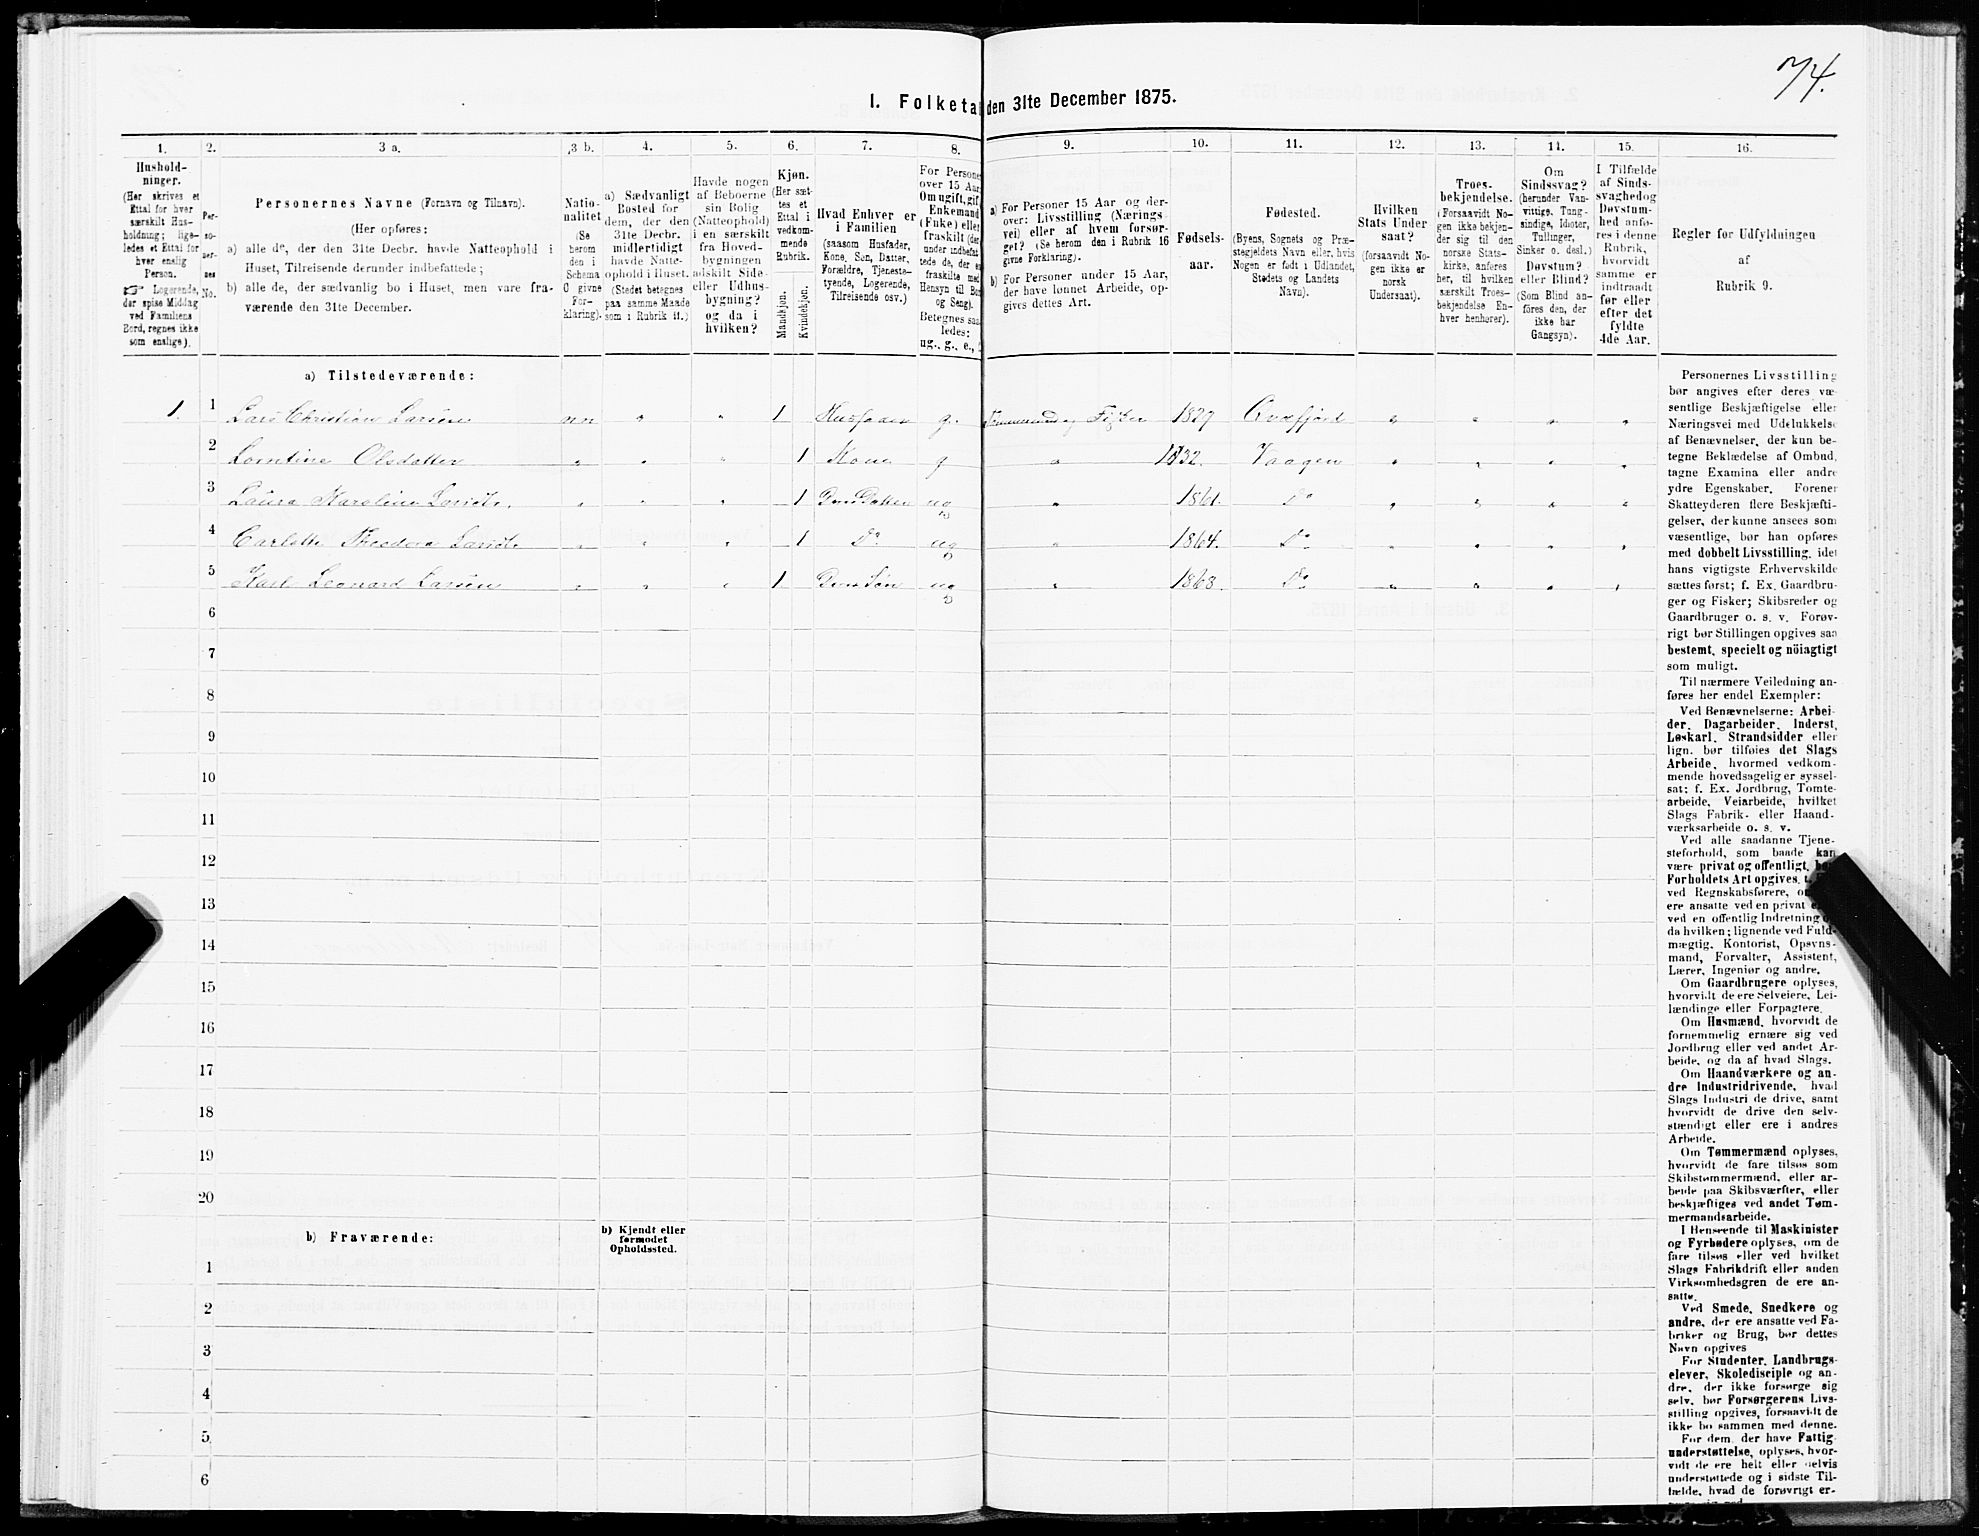 74.
I. Folketal den 31te December 1875.
1. 2. 3 a. 3 b. 4. 5. 6. 7. 8. 9. 10. 11. 12. 13. 14. 15. 16.
Hushold-
ninger.
(Her skrives et
Ettal for hver
særskilt Hus-
holdning; lige-
ledes et Ettal for
hver enslig
Person.
☞ Logerende,
der spise Middag
ved Familiens
Bord, regnes ikke
som enslige).
Per-
so-
ner-
nes
No.
Personernes Navne (Fornavn og Tilnavn).
(Her opføres:
a) alle de, der den 31te Decbr. havde Natteophold i
Huset, Tilreisende derunder indbefattede;
b) alle de, der sædvanlig bo i Huset, men vare fra-
værende den 31te December.
Natio-
nalitet
(Se
herom
den i
Schema
O givne
For-
klaring).
a) Sædvanligt
Bosted for
dem, der den
31te Decbr.
midlertidigt
havde Natte-
ophold i Huset.
(Stedet betegnes
paa samme Maade
som i Rubrik 11.)
Havde nogen
af Beboerne
sin Bolig
(Natteophold)
i en særskilt
fra Hoved-
bygningen
adskilt Side-
eller Udhus-
bygning?
og da i
hvilken?
Kjøn.
(Her sæt-
tes et
Ettal i
vedkom-
mende
Rubrik.
Mandkjøn.
Kvindekjøn.
Hvad Enhver er
i Familien
(saasom Husfader,
Kone, Søn, Datter,
Forældre, Tjeneste-
tyende, Logerende,
Tilreisende osv.)
For Persone
over 15 Aar
Om ugift, gif
Enkemand
(Enke) eller
fraskilt (der
under indbefat
tede de, der er
fraskilte med
Hensyn til Bor
og Seng).
Betegnes saa
ledes:
ug., g., e.,
a) For Personer 15 Aar og der-
over: Livsstilling (Nærings-
vei) eller af hvem forsør-
get? (Se herom den i Rubrik 16
givne Forklaring).
b) For Personer under 15 Aar,
der have lønnet Arbeide, op-
gives dettes Art.
Fødsels-
aar.
Fødested.
(Byens, Sognets og Præ-
stegjeldets Navn eller, hvis
Nogen er født i Udlandet,
Stedets og Landets
Navn).
Hvilken
Stats Under
saat?
(forsaavidt No-
gen ikke er
norsk
Undersaat).
Troes-
bekjendelse.
(Forsaavidt No-
gen ikke bekjen-
der sig til den
norske Stats-
kirke, anføres
her, til hvilken
særskilt Troes-
bekjendelse En-
hver henhører).
Om
Sindssvag?
(herunder Van-
vittige, Tung-
sindige, Idioter,
Tullinger,
Sinker o. desl.)
Døvstum?
eller Blind?
(Som Blind an-
føres den, der
ikke har
Gangsyn).
I Tilfælde
af Sinds-
svaghed og
Døvstum-
hed anfø-
res i denne
Rubrik,
hvorvidt
samme er
indtraadt
før eller
efter det
fyldte
4de Aar.
Regler for Udfyldningen
af
Rubrik 9.
a) Tilstedeværende:
1. 1 Lars Christian Larsen nn " " 1 Husfader g. Tømmermand og Fisker 1829 Qvæfjord " " " "
2 Lorntine Olsdatter " " " 1 Kone g " 1832. Vaagen " " " "
3 Laura Karoline Larsdtr. " " " 1 Deres Datter ug " 1861. Do " " " "
4 Carlotte Theodora Larsdtr " " " 1 Do. ug " 1864. Do " " " "
5 Karl Leonard Larsen " " " 1 Deres Søn ug " 1868. Do " " " "
6
7
8
9
10
11
12
13
14
15
16
17
18
19
20
b) Fraværende:
b) Kjendt eller
formodet
Opholdssted.
1
2
3
4
5
6
Personernes Livsstilling
bør angives efter deres væ-
sentlige Beskjæftigelse eller
Næringsvei med Udelukkelse
af Benævnelser, der kun be-
tegne Beklædelse af Ombud,
tagne Examina eller andre
ydre Egenskaber. Forener
Skatteyderen flere Beskjæfti-
gelser, der kunne ansees som
væsentlige, bør han opføres
med dobbelt Livsstilling, idet
hans vigtigste Erhvervskilde
sættes først; f. Ex. Gaardbru-
ger og Fisker; Skibsreder og
Gaardbruger o. s. v. Forøv-
rigt bør Stillingen opgives saa
bestemt, specielt og nöiagtigt
som muligt.
Til nærmere Veiledning an-
føres her endel Exempler:
Ved Benævnelserne: Arbei-
der, Dagarbeider, Inderst,
Løskarl, Strandsidder eller
lign. bør tilføies det Slags
Arbeide, hvormed vedkom-
mende hovedsagelig er syssel-
sat; f. Ex. Jordbrug, Tomte-
arbeide, Veiarbeide, hvilket
Slags Fabrik- eller Haand-
værksarbeide o. s. v.
Ved alle saadanne Tjene-
steforhold, som baade kan
være privat og offentligt, bør
Forholdets Art opgives,
ved Regnskabsførere,
ere ansatte ved en privat
ved en offentlig Indretning
da hvilken; lignende ved Fuld-
mægtig, Kontorist, Opsyns-
mand, Forvalter, Assistent,
Lærer, Ingeniør og andre.
Om Gaardbrugere oplyses,
hvorvidt de ere Selveiere, Lei-
lændinge eller Forpagtere.
Om Husmænd, hvorvidt de
fornemmelig ernære sig ved
Jordbrug eller ved andet Ar-
beide, og da af hvad Slags.
Om Haandværkere og an-
dre Industridrivende, hvad
Slags Industri de drive, samt
hvorvidt de drive den selv-
stændigt eller ere i andres
Arbeide.
Om Tømmermænd oplyses,
hvorvidt de fare tilsøs som
Skibstømmermænd, eller ar-
beide paa Skibsværfter, eller
beskjæftiges ved andet Tøm-
mermandsarbeide.
I Henseende til Maskinister
og Fyrbødere oplyses, om de
fare tilsøs eller ved hvilket
Slags Fabrikdrift eller anden
Virksomhedsgren de ere an-
satte.
Ved Smede, Snedkere og
andre, der ere ansatte ved Fa-
briker og Brug, bør dettes
Navn opgives
For Studenter, Landbrugs-
elever, Skoledisciple og an-
dre, der ikke forsørge sig
selv, bør Forsørgerens Livs-
stilling opgives, forsaavidt de
ikke bo sammen med denne.
For dem, der have Fattig-
understøttelse, oplyses, hvor-
vidt de ere helt eller delvis
understøttede og i sidste Til-
fælde, hvad de forøvrigt er-